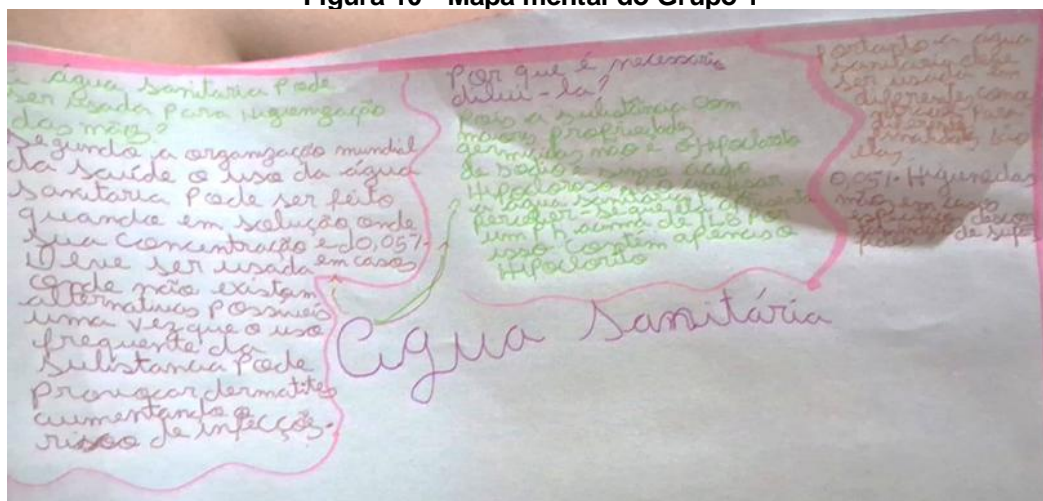 Figura 10 - Mapa mental do Grupo 1
A água sanitaria Pode
ser usada Para Higienização
das mãos?
Segundo a organização mundial
da saúde o uso da água
sanitaria Pode ser feito
quando em solução onde
sua concentração e d0,05%.
Deve ser usada em casos
onde não existam
alternativas Possiveis
uma vez que o uso
frequente da
Substancia Pode
provocar dermatites
aumentando o
risco de infecções.
Por que é necessario
dilui-la?
Pois a substância com
maiores propriedades
germicidas não é o Hipoclorito
de sodio e sim o ácido
Hipocloroso. Ao analisar
a água sanitaria
perceber-se que ela apresenta
um pH acima de 11,0 Por
isso contém apenas o
Hipoclorito
Portanto a água
sanitaria deve
ser usada em
diferentes concen
Para
0,05%- Higiene das
mãos em casos
de super
ficies
Agua Sanitária